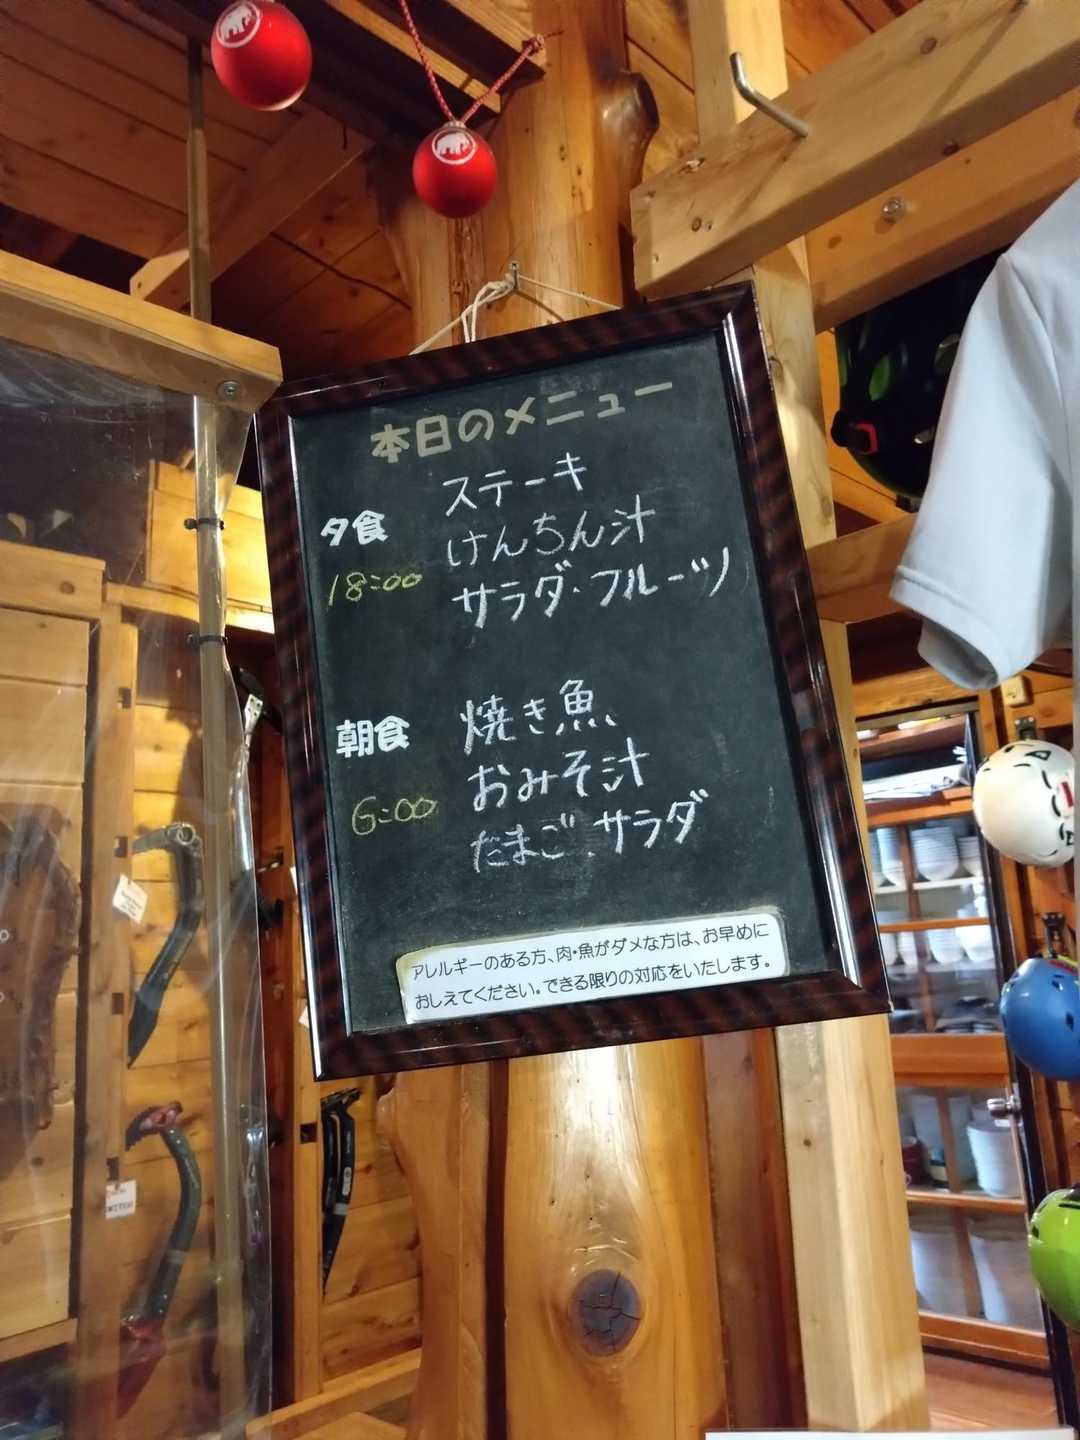 本日のメニュー
夕食
18:00
ステーキ
けんちん汁
サラダ・フルーツ
朝食
6:00
焼き魚
おみそ汁
たまご、サラダ
アレルギーのある方、肉・魚がダメな方は、お早めに
おしえてください。できる限りの対応をいたします。